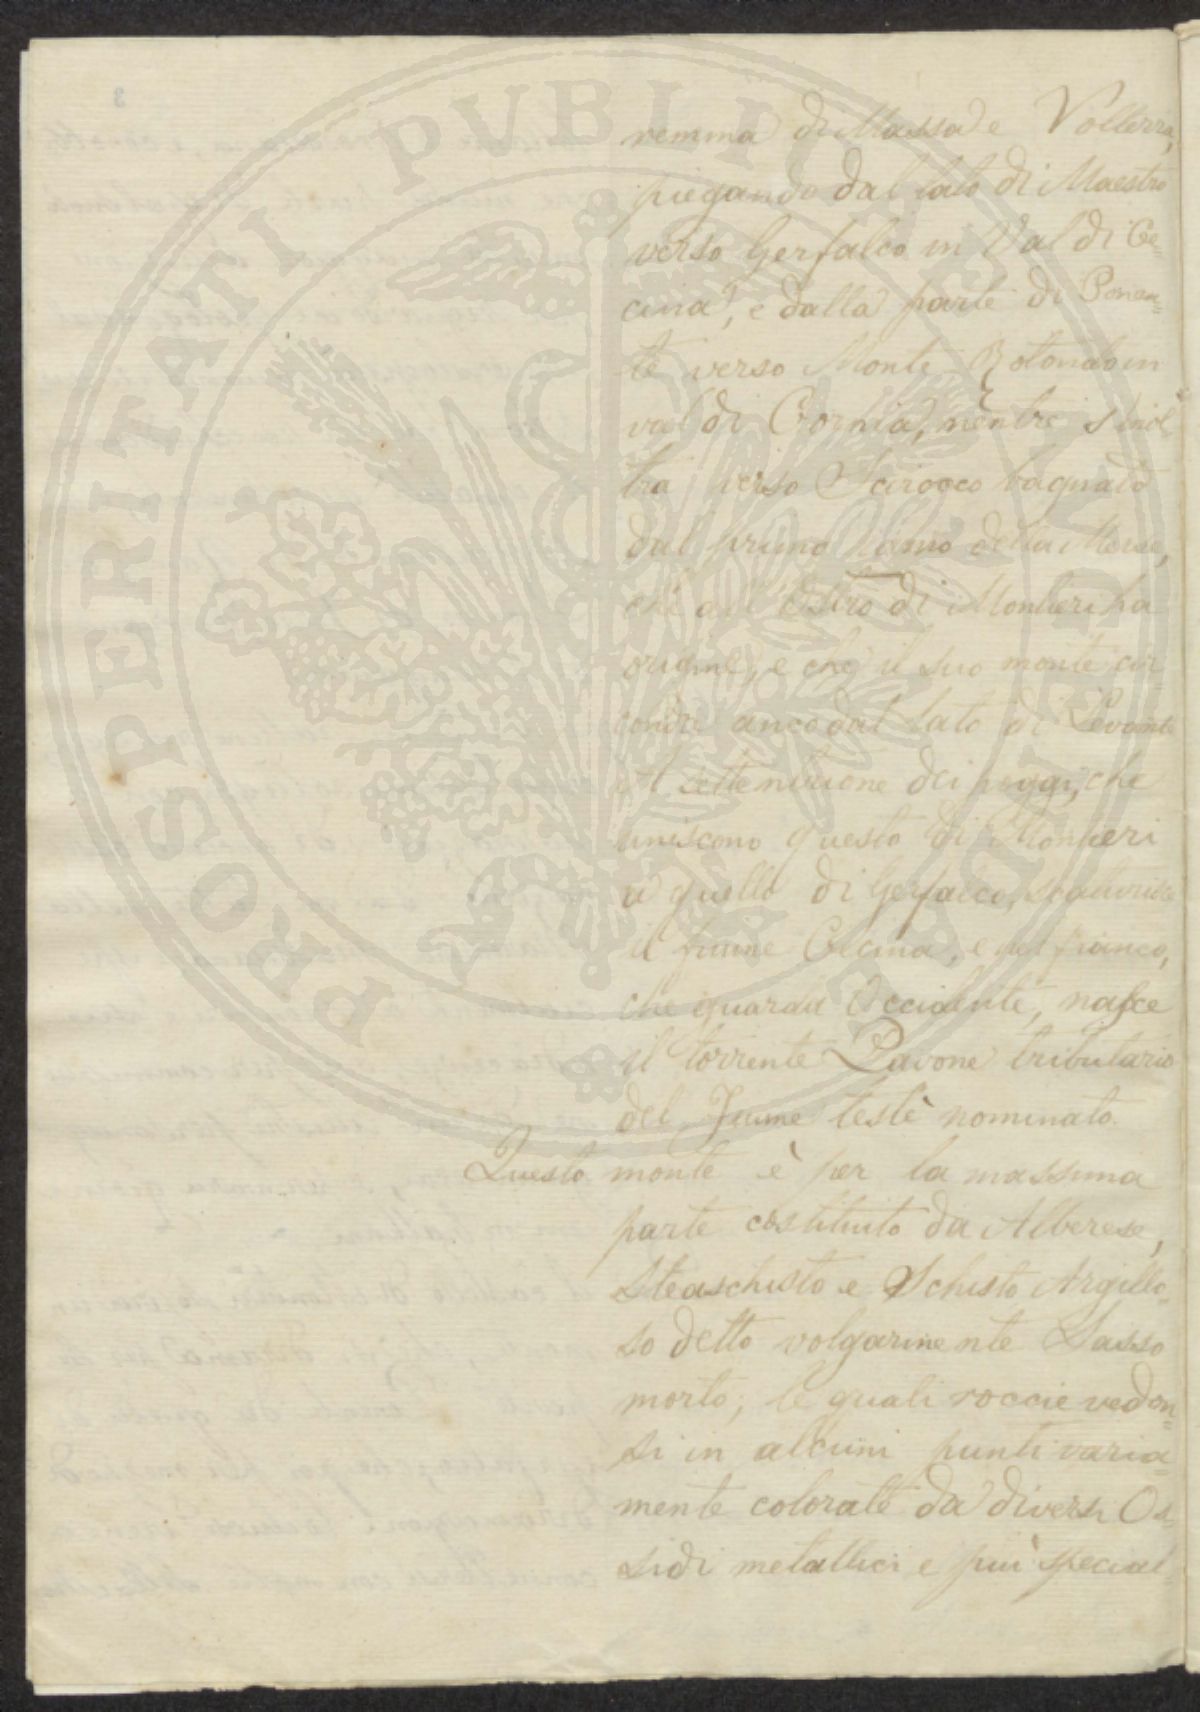 remma di Massa e Volterra,
piegando dal lato di Maestro
verso Gerfalco in Val di Ce=
cina, e dalla parte di Ponen=
te verso Monte Rotondo in
val di Cornia, mentre s'inol
tra verso Scirocco bagnato
dal primo ramo della Merse,
che all'Ostro di Montieri ha
origine, e che il suo monte cir=
conda anco dal lato di Levante
A settentrione dei poggi, che
uniscono questo di Montieri
a quello di Gerfalco, scaturisce
il fiume Cecina, e nel fianco,
che guarda Occidente, nasce
il torrente Pavone tributario
del Fiume testè nominato.
Questo monte è per la massima
parte costituito da Alberese,
Steaschisto e Schisto Argillo=
so detto volgarmente Sasso
morto; le quali roccie vedon=
si in alcuni punti varia=
mente colorate da diversi Os=
sidi metallici e più special=
PROSPERITATI PUBLICAE AUGENDAE